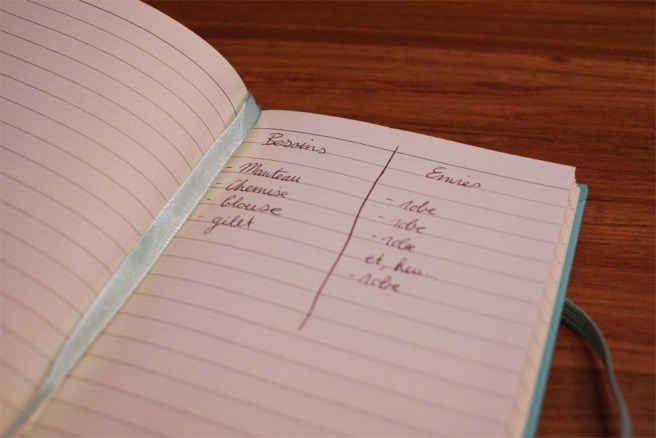 Besoins
- Manteau
- Chemise
- blouse
- gilet
Envies
- robe
- robe
- robe
et, heu...
- robe